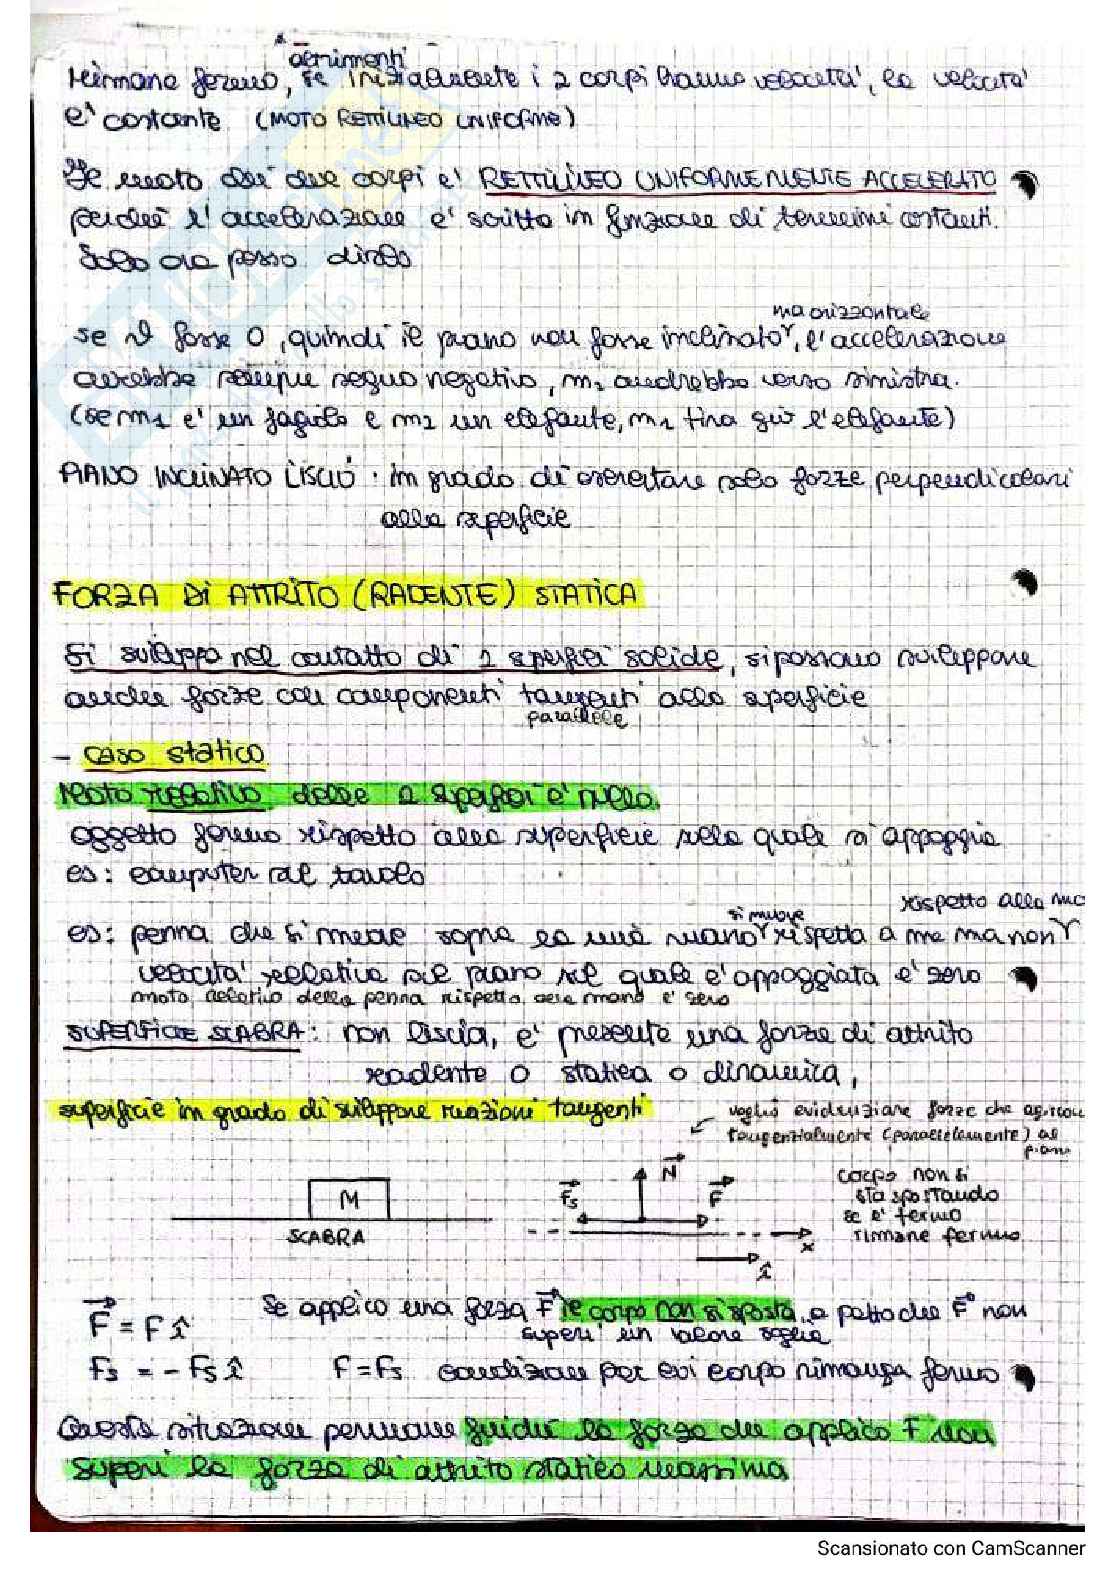 altrimenti
rimane fermo, se inizialmente i 2 corpi hanno velocità, la velocità
e' costante (MOTO RETTILINEO UNIFORME)
Il moto dei due corpi e' RETTILINEO UNIFORMEMENTE ACCELERATO
perché l'accelerazione e' scritta in funzione di termini costanti.
Solo ora posso dirlo
ma orizzontale
se ϑ fosse 0, quindi il piano non fosse inclinato, l'accelerazione
avrebbe sempre segno negativo, m₂ andrebbe verso sinistra.
(se m₁ e' un fagiolo e m₂ un elefante, m₁ tira giù l'elefante)
PIANO INCLINATO LISCIO: in grado di esercitare solo forze perpendicolari
alla superficie
FORZA DI ATTRITO (RADENTE) STATICA
Si sviluppa nel contatto di 2 superfici solide, si possono sviluppare
anche forze con componenti tangenti alla superficie
parallele
- caso statico
Moto relativo delle 2 superfici e' nullo.
oggetto fermo rispetto alla superficie sulla quale si appoggia
es: computer sul tavolo
rispetto alla
si muove
es: penna che si mette sopra la mia mano rispetto a me ma non
velocità relativa sul piano sul quale e' appoggiata e' zero
moto relativo della penna rispetto alla mano e' zero
SUPERFICIE SCABRA: non liscia, e' presente una forza di attrito
radente o statica o dinamica,
superficie in grado di sviluppare reazioni tangenti
voglio evidenziare forze che agiscono
tangenzialmente (parallelamente) al
piano
N
Fs F
corpo non si
sta spostando
se e' fermo
rimane fermo
M
SCABRA
x
î
F = F î
Se applico una forza F il corpo non si sposta, a patto che F non
superi un valore soglia
Fs = - Fs î F = Fs condizione per cui corpo rimanga fermo
Questa situazione permane finché la forza che applico F non
superi la forza di attrito statico massima
Scansionato con CamScanner